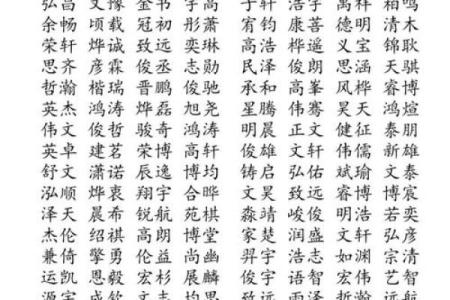 弘昌 文豫 金书 宇高 子轩 浩宇 禹祥 柏鸣
余畅 顷载 冠初 彤萧 宥钧 康善 德明 清木
荣轩 烨诚 致远 奕琳 高浩 桦遥 义宝 锦耿
思齐 彦霖 俊丞 志勋 民泽 俊朗 思涵 天骐
哲瀚 楷瑞 晋鹏 俊驰 承和 高峯 风桦 天博
英杰 鸿涛 烨磊 旭尧 星腾 伟骞 昊天 鸿煊
伟文 俊哲 骏奇 鸿涛 明晨 文昊 健征 泰朋
英卓 建茗 荣博 高轩 俊雄 正轩 伟儒 新雄
舒文 潇诺 辰逸 博均 铸启 弘佑 斌瑜 文泰
泓顺 烨衷 翔宇 合晔 文昊 致远 睿博 博宸
泽天 晨希 锐航 苑棋 淼靖 俊睿 明浩 若奕
杰伦 绍祺 高朗 博堂 家楚 润盛 文轩 弘彦
兼倚 擎勇 伦益 尚麟 羿宇 浩志 如渊 宗清
运凯 恩毅 宏杉 幽展 浩宇 语智 宏伟 艺智